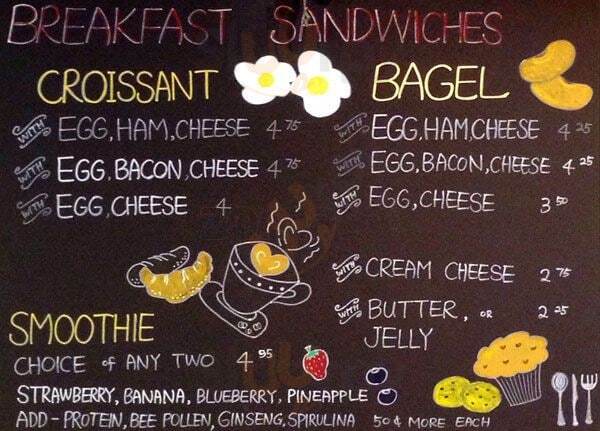 BREAKFAST SANDWICHES
CROISSANT
WITH EGG, HAM, CHEESE 4 75
WITH EGG, BACON, CHEESE 4 75
WITH EGG, CHEESE 4
BAGEL
WITH EGG, HAM, CHEESE 4 25
WITH EGG, BACON, CHEESE 4 25
WITH EGG, CHEESE 3 50
WITH CREAM CHEESE 2 75
WITH BUTTER, OR 2 25
JELLY
SMOOTHIE
CHOICE of ANY TWO 4 95
STRAWBERRY, BANANA, BLUEBERRY, PINEAPPLE
ADD - PROTEIN, BEE POLLEN, GINSENG, SPIRULINA 50¢ MORE EACH